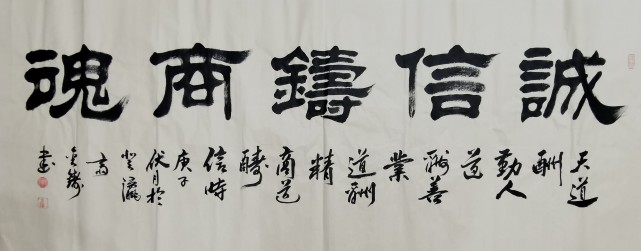 誠信鑄商魂
天道
酬
勤人
道
酬善
業
道酬
精
商道
酬
信時
庚子
伏月於
登瀛
書